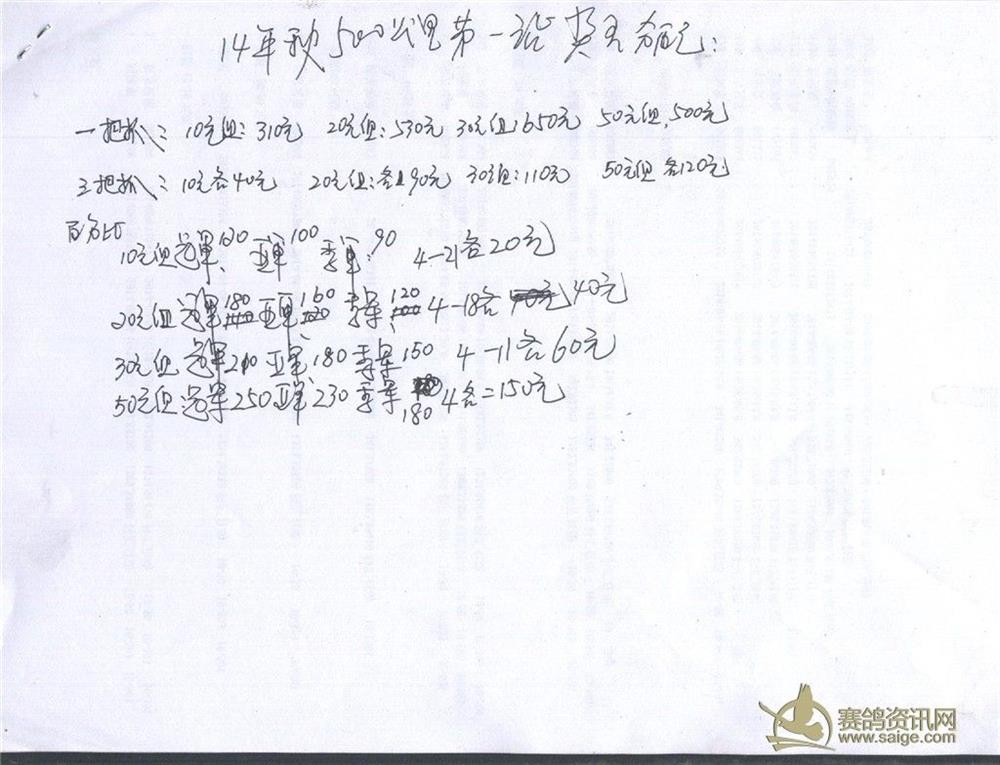 14年秋500公里第一站奖金分配:
一把抓: 10元组: 310元 20元组: 530元 30元组: 650元 50元组, 500元
三把抓: 10元各40元 20元组: 各190元 30元组: 110元 50元组各120元
百分比
10元组冠军、120 亚军100 季军: 90 4-21各20元
20元组冠军180 亚军160 季军120 4-18各40元
30元组冠军210亚军、180季军150 4-11各60元
50元组冠军250亚军、230季军180 4各=150元
赛鸽资讯网
www.saige.com